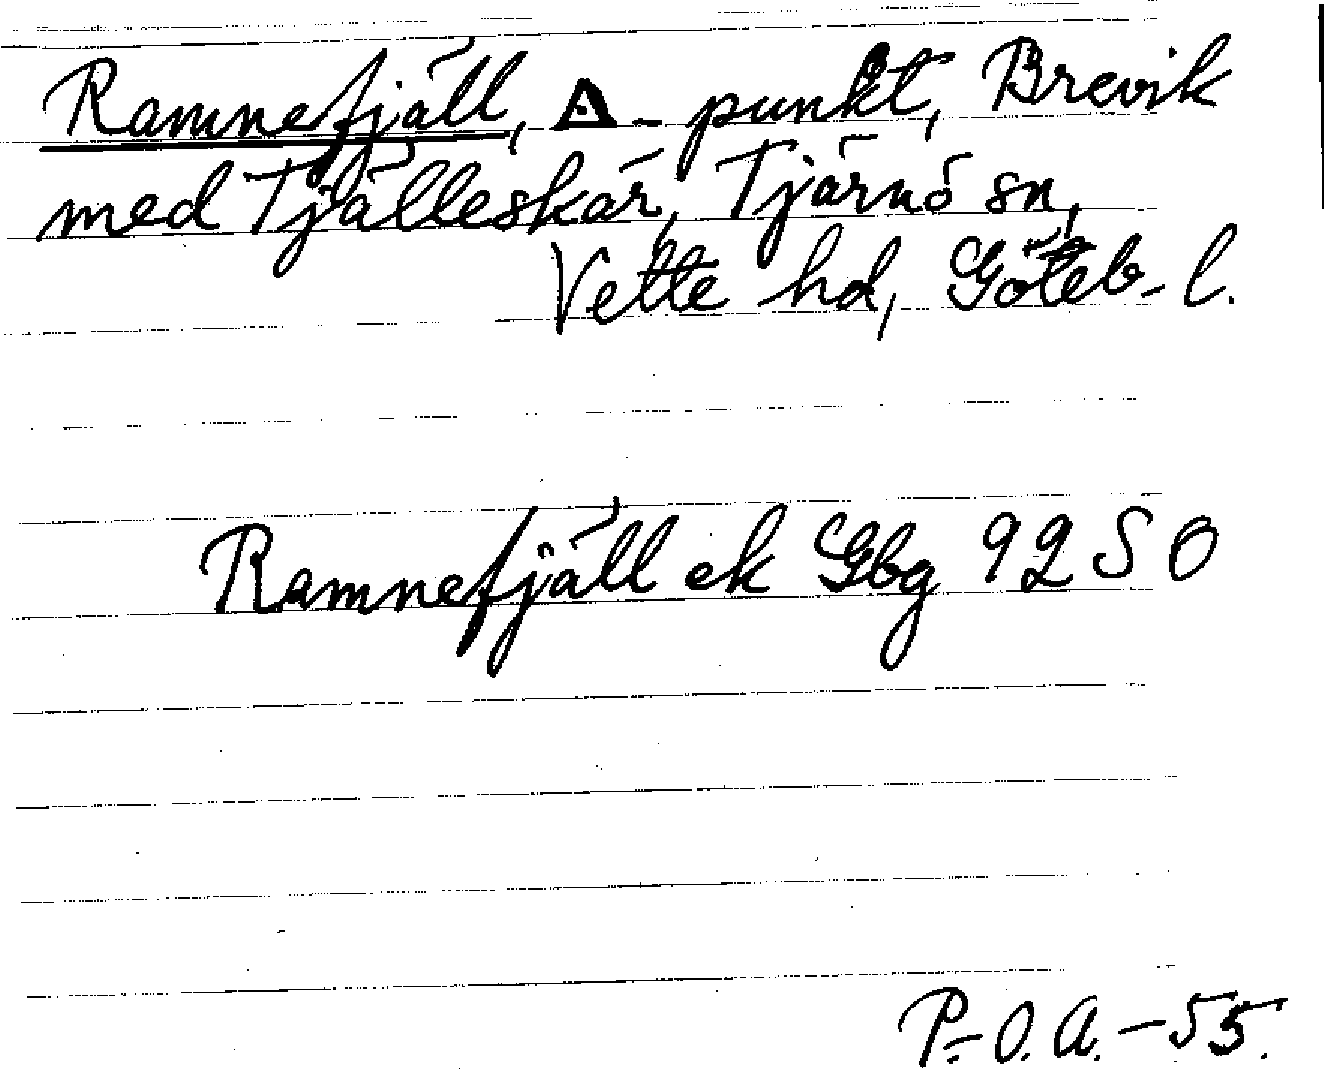 Ramnefjäll, Δ - punkt, Brevik
med Tjälleskär, Tjärnö sn,
Vette hd, Göteb. l.
Ramnefjäll ek Gbg 92 S O
P.-O. A. - 55.